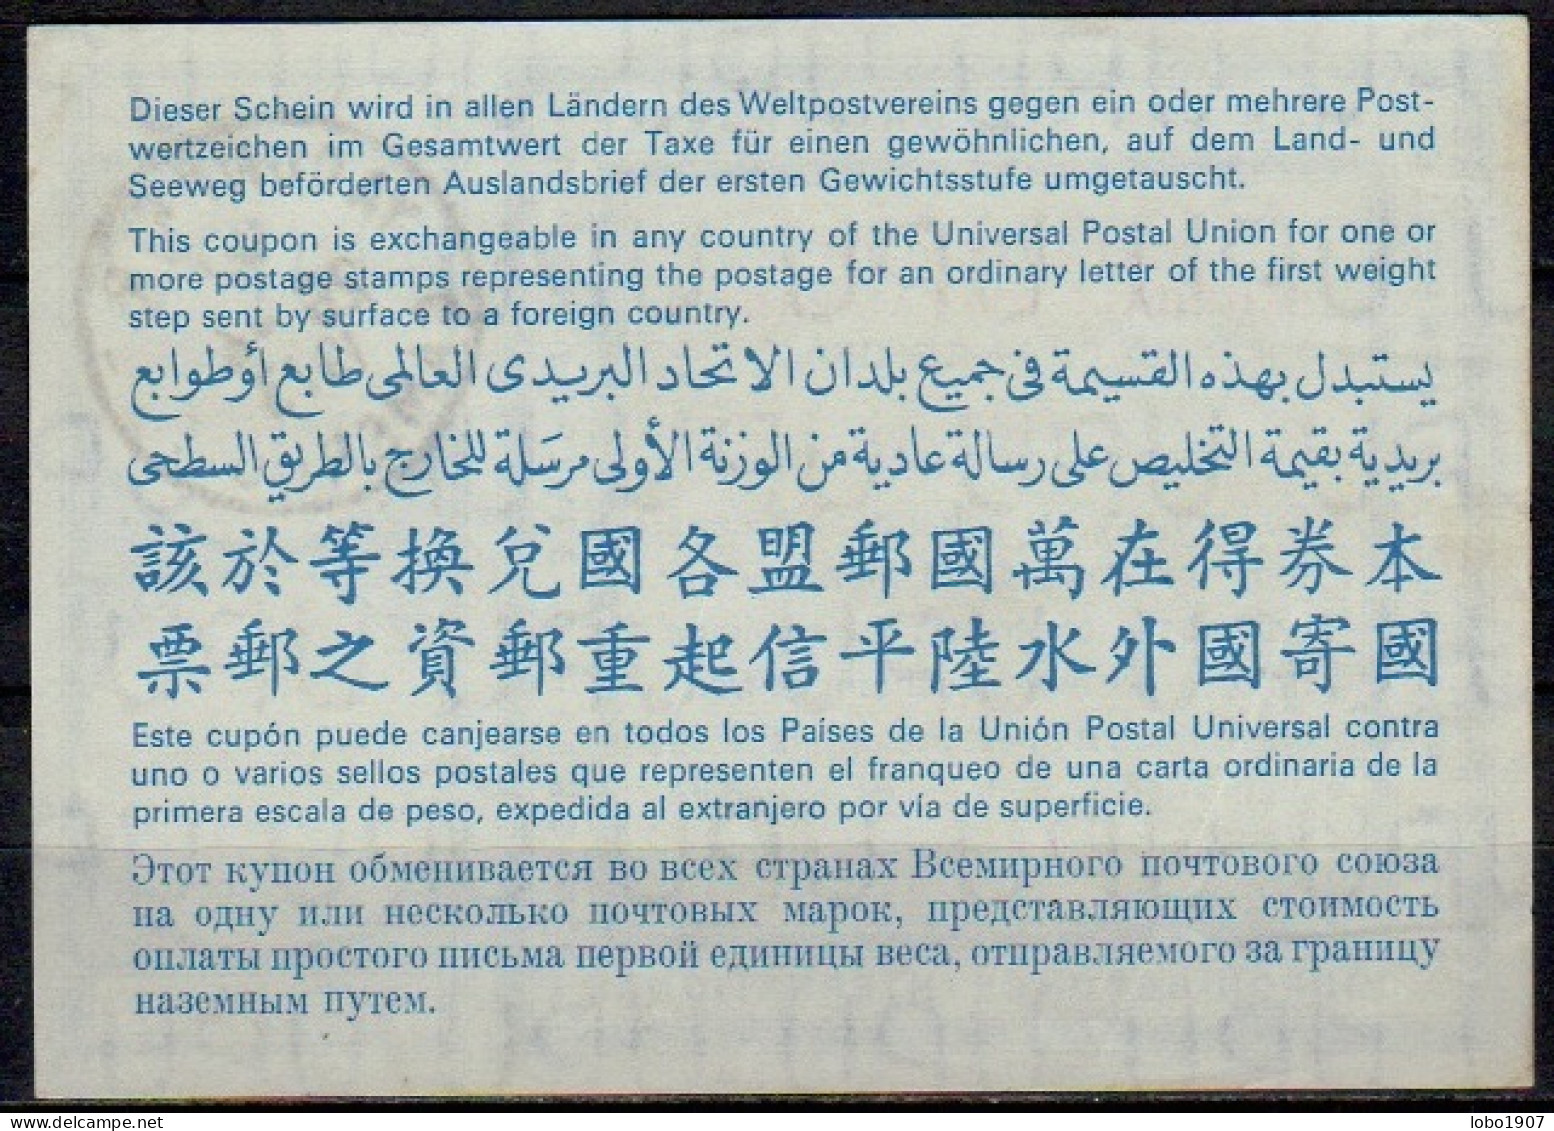 Dieser Schein wird in allen Ländern des Weltpostvereins gegen ein oder mehrere Post-
wertzeichen im Gesamtwert der Taxe für einen gewöhnlichen, auf dem Land- und
Seeweg beförderten Auslandsbrief der ersten Gewichtsstufe umgetauscht.
This coupon is exchangeable in any country of the Universal Postal Union for one or
more postage stamps representing the postage for an ordinary letter of the first weight
step sent by surface to a foreign country.
يستبدل بهذه القسيمة فى جميع بلدان الاتحاد البريدى العالمى طابع أو طوابع
بريدية بقيمة التخليص على رسالة عادية من الوزنة الأولى مرسَلة للخارج بالطريق السطحى
本券得在萬國郵盟各國兌換等於該
國寄國外水陸平信起重郵資之郵票
Este cupón puede canjearse en todos los Países de la Unión Postal Universal contra
uno o varios sellos postales que representen el franqueo de una carta ordinaria de la
primera escala de peso, expedida al extranjero por vía de superficie.
Этот купон обменивается во всех странах Всемирного почтового союза
на одну или несколько почтовых марок, представляющих стоимость
оплаты простого письма первой единицы веса, отправляемого за границу
наземным путем.
delcampe.net
lobo1907